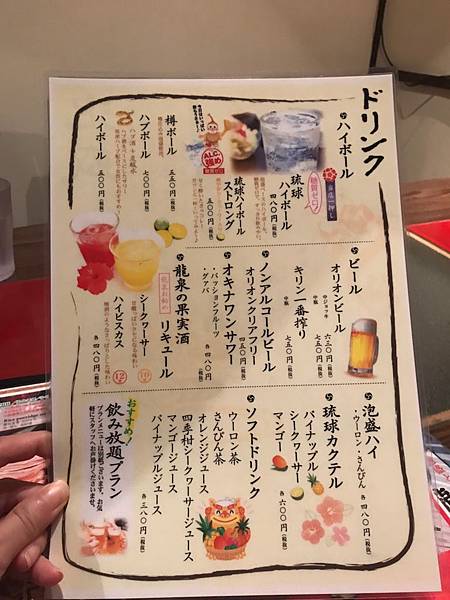 ドリンク
ハイボール
琉球
ハイボール
四八〇円(税抜)
糖質ゼロ
当店一押し
琉球ハイボール
ストロング
五八〇円(税抜)
ALC.強め
糖質ゼロ
樽ボール
五五〇円(税抜)
ハブボール
七〇〇円(税抜)
ハブ酒+炭酸水
ハイボール
五〇〇円(税抜)
ビール
オリオンビール
中ジョッキ 六三〇円(税抜)
中瓶 七五〇円(税抜)
キリン一番搾り
中瓶 七五〇円(税抜)
ノンアルコールビール
オリオンクリアフリー
四五〇円(税抜)
オキナワンサワー
・パッションフルーツ
・グァバ
各四八〇円(税抜)
龍泉の果実酒
リキュール
シークヮーサー
ハイビスカス
各四八〇円(税抜)
泡盛ハイ
・ウーロン・さんぴん
各四八〇円(税抜)
琉球カクテル
パイナップル
シークワーサー
マンゴー
各六〇〇円(税抜)
ソフトドリンク
ウーロン茶
さんぴん茶
オレンジジュース
四季柑シークヮーサージュース
マンゴージュース
パイナップルジュース
各三八〇円(税抜)
おすすめ!
飲み放題プラン
プランメニューは別紙ございます。お気
軽にスタッフへお声掛けくださいませ。